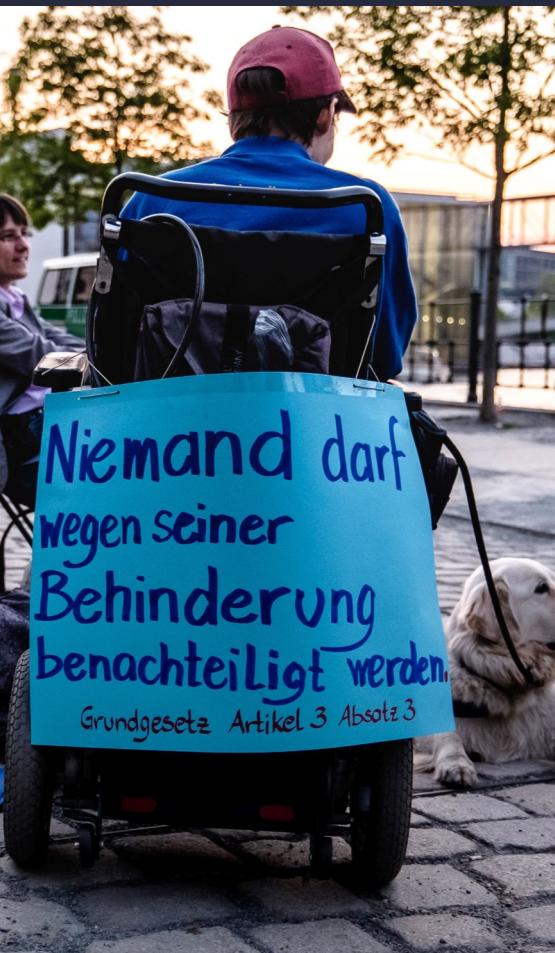 Niemand darf
wegen seiner
Behinderung
benachteiligt werden.
Grundgesetz Artikel 3 Absatz 3